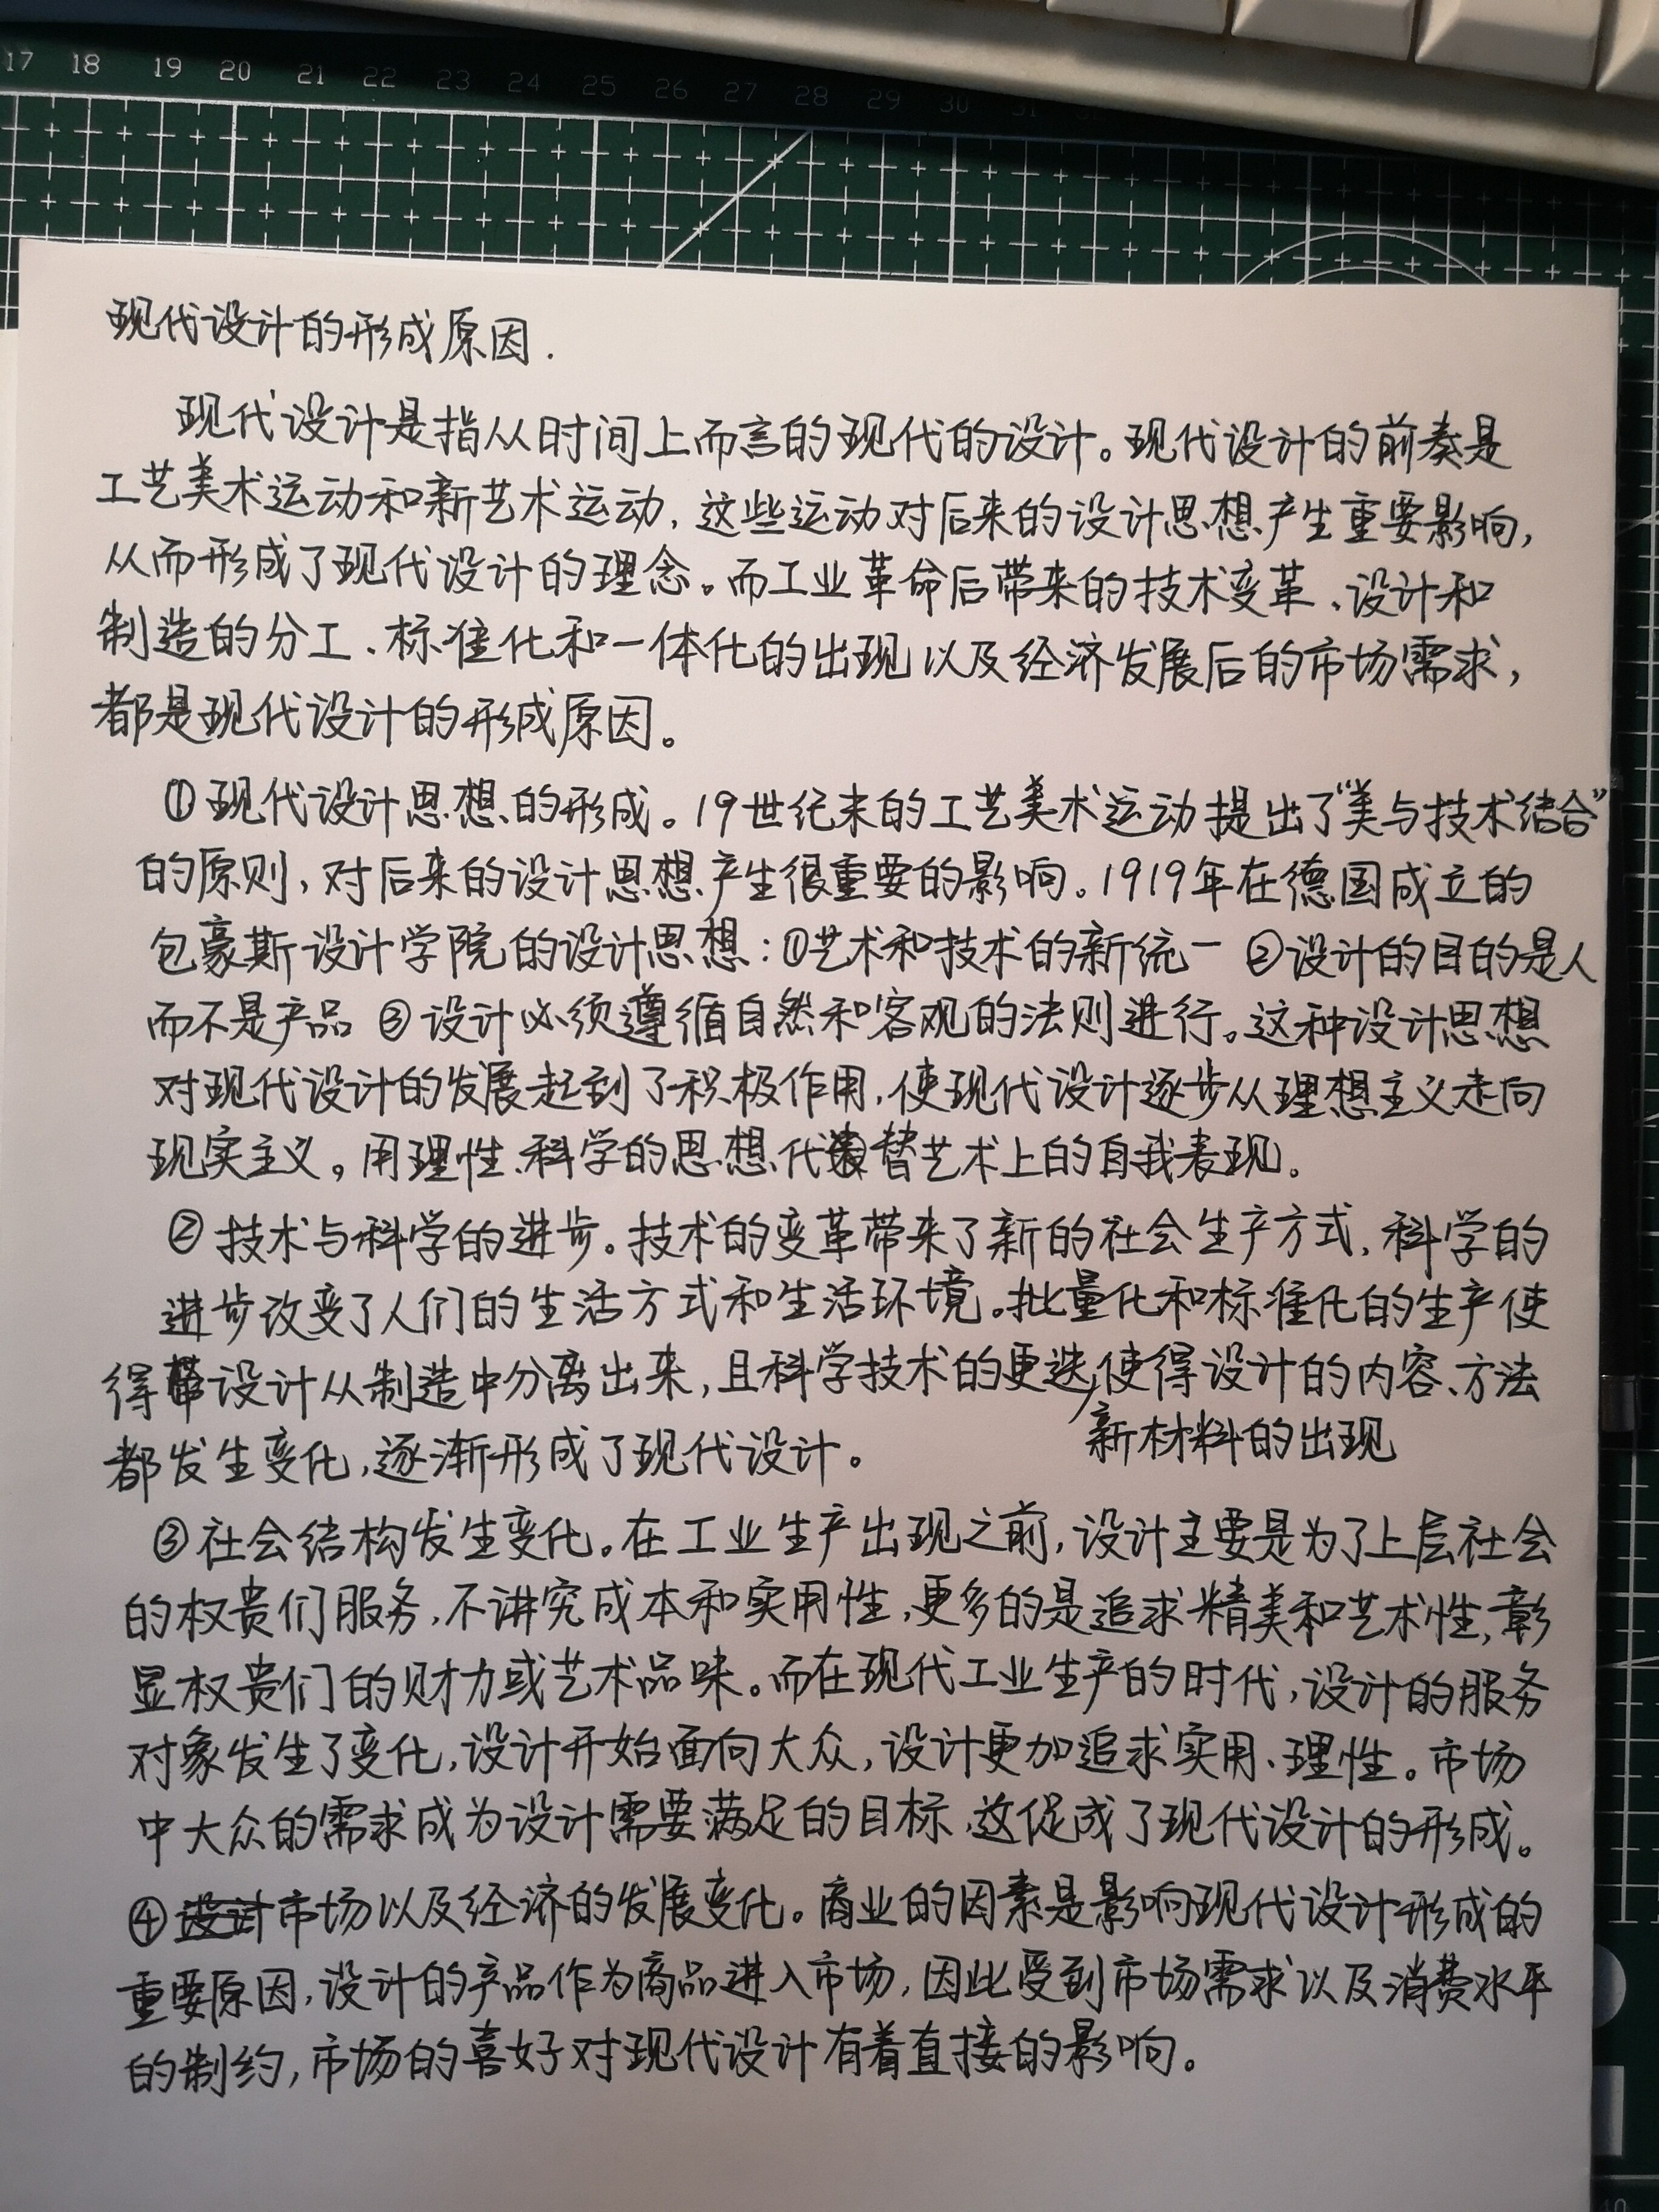 17 18 19 20 21 22 23 24 25 26 27 28 29 30 31
现代设计的形成原因.
现代设计是指从时间上而言的现代的设计。现代设计的前奏是
工艺美术运动和新艺术运动，这些运动对后来的设计思想产生重要影响，
从而形成了现代设计的理念。而工业革命后带来的技术变革、设计和
制造的分工、标准化和一体化的出现以及经济发展后的市场需求，
都是现代设计的形成原因。
①现代设计思想的形成。19世纪末的工艺美术运动提出了“美与技术结合”
的原则，对后来的设计思想产生很重要的影响。1919年在德国成立的
包豪斯设计学院的设计思想：①艺术和技术的新统一 ②设计的目的是人
而不是产品 ③设计必须遵循自然和客观的法则进行。这种设计思想
对现代设计的发展起到了积极作用，使现代设计逐步从理想主义走向
现实主义。用理性、科学的思想代替艺术上的自我表现。
②技术与科学的进步。技术的变革带来了新的社会生产方式，科学的
进步改变了人们的生活方式和生活环境。批量化和标准化的生产使
得设计从制造中分离出来，且科学技术的更迭，使得设计的内容、方法
新材料的出现
都发生变化，逐渐形成了现代设计。
③社会结构发生变化。在工业生产出现之前，设计主要是为了上层社会
的权贵们服务，不讲究成本和实用性，更多的是追求精美和艺术性，彰
显权贵们的财力或艺术品味。而在现代工业生产的时代，设计的服务
对象发生了变化，设计开始面向大众，设计更加追求实用、理性。市场
中大众的需求成为设计需要满足的目标，这促成了现代设计的形成。
④设计市场以及经济的发展变化。商业的因素是影响现代设计形成的
重要原因，设计的产品作为商品进入市场，因此受到市场需求以及消费水平
的制约，市场的喜好对现代设计有着直接的影响。